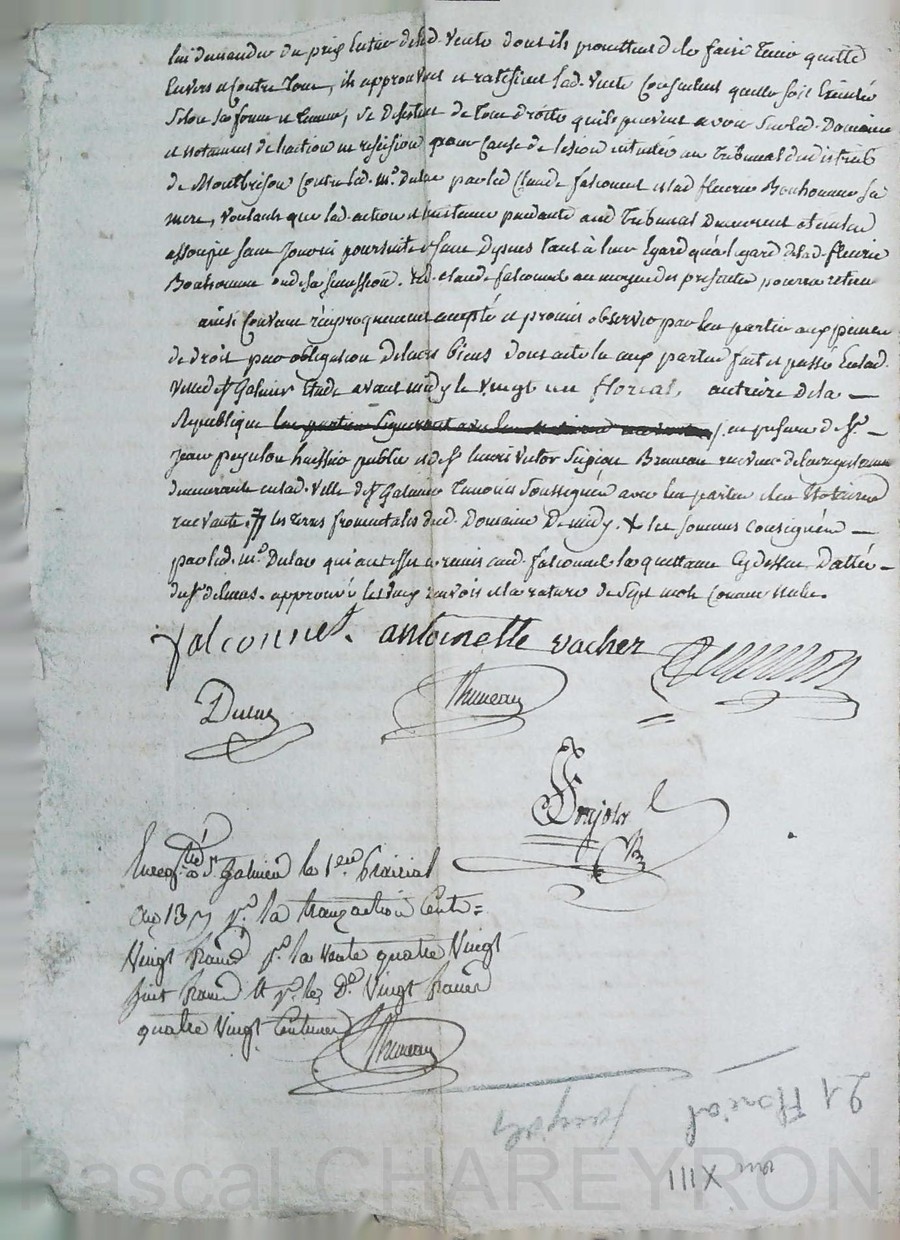 lui demander du prix entier de lad. vente dont ils promettent de le faire tenir quitte
Envers et Contre tous, ils approuvent et ratifient lad. vente Consentent quelle soit Exécutée
Selon sa forme et teneur, se désistent de tous droits quils peuvent avoir sur led. Domaine
et notament de laction en résision pour Cause de lésion intentée au tribunal du district
de Montbrison Contre led. Mr. Dulac par led Claude falconnet et lad fleurie Bonhomme sa
mere, voulant que lad. action et instance pendante aud tribunal Demeurent Eteintes
assoupie sans pouvoir poursuite et sans Depens tant à leur Egard quà legard de lad. fleurie
Bonhomme ou de sa succession. led. Claude falconnet au moyen des présentes pourra retirer
ainsi Convenu réciproquement accepté et promis observer par les parties aux peines
de droit par obligation de leurs biens dont acte lu aux parties fait et passé En lad.
ville de St. Galmier Etude avant midy le vingt un floreal, an treize de la —
Republique les parties Signeront avec les / en présence de Sr. —
Jean peysselon huissier public et de Sr. Bruneau receveur de l'enregistrement
demeurants en lad. ville de St Galmier temoins Soussignés avec les parties et les Notaires
recevants. les terres fromentales dud. Domaine De midy. & les sommes Consignées —
par led. Mr. Dulac qui a et remis aud. falconnet la quittance Cy dessus Dattée —
du Sr. delmas. approuvé les deux renvois et la rature de Sept mots Comme Nuls.
falconnet. antoinette vacher
Dulac Bruneau
Bonjour
Enregtré. à St. Galmier le 1er. Prairial
an 13 pr. la tranzaction Cent =
Vingt francs pr. la vente quatre Vingt
huit francs Et pr. les De. Vingt francs
quatre Vingt Centimes
Bruneau
21 Floreal
an XIII
Pascal CHAREYRON